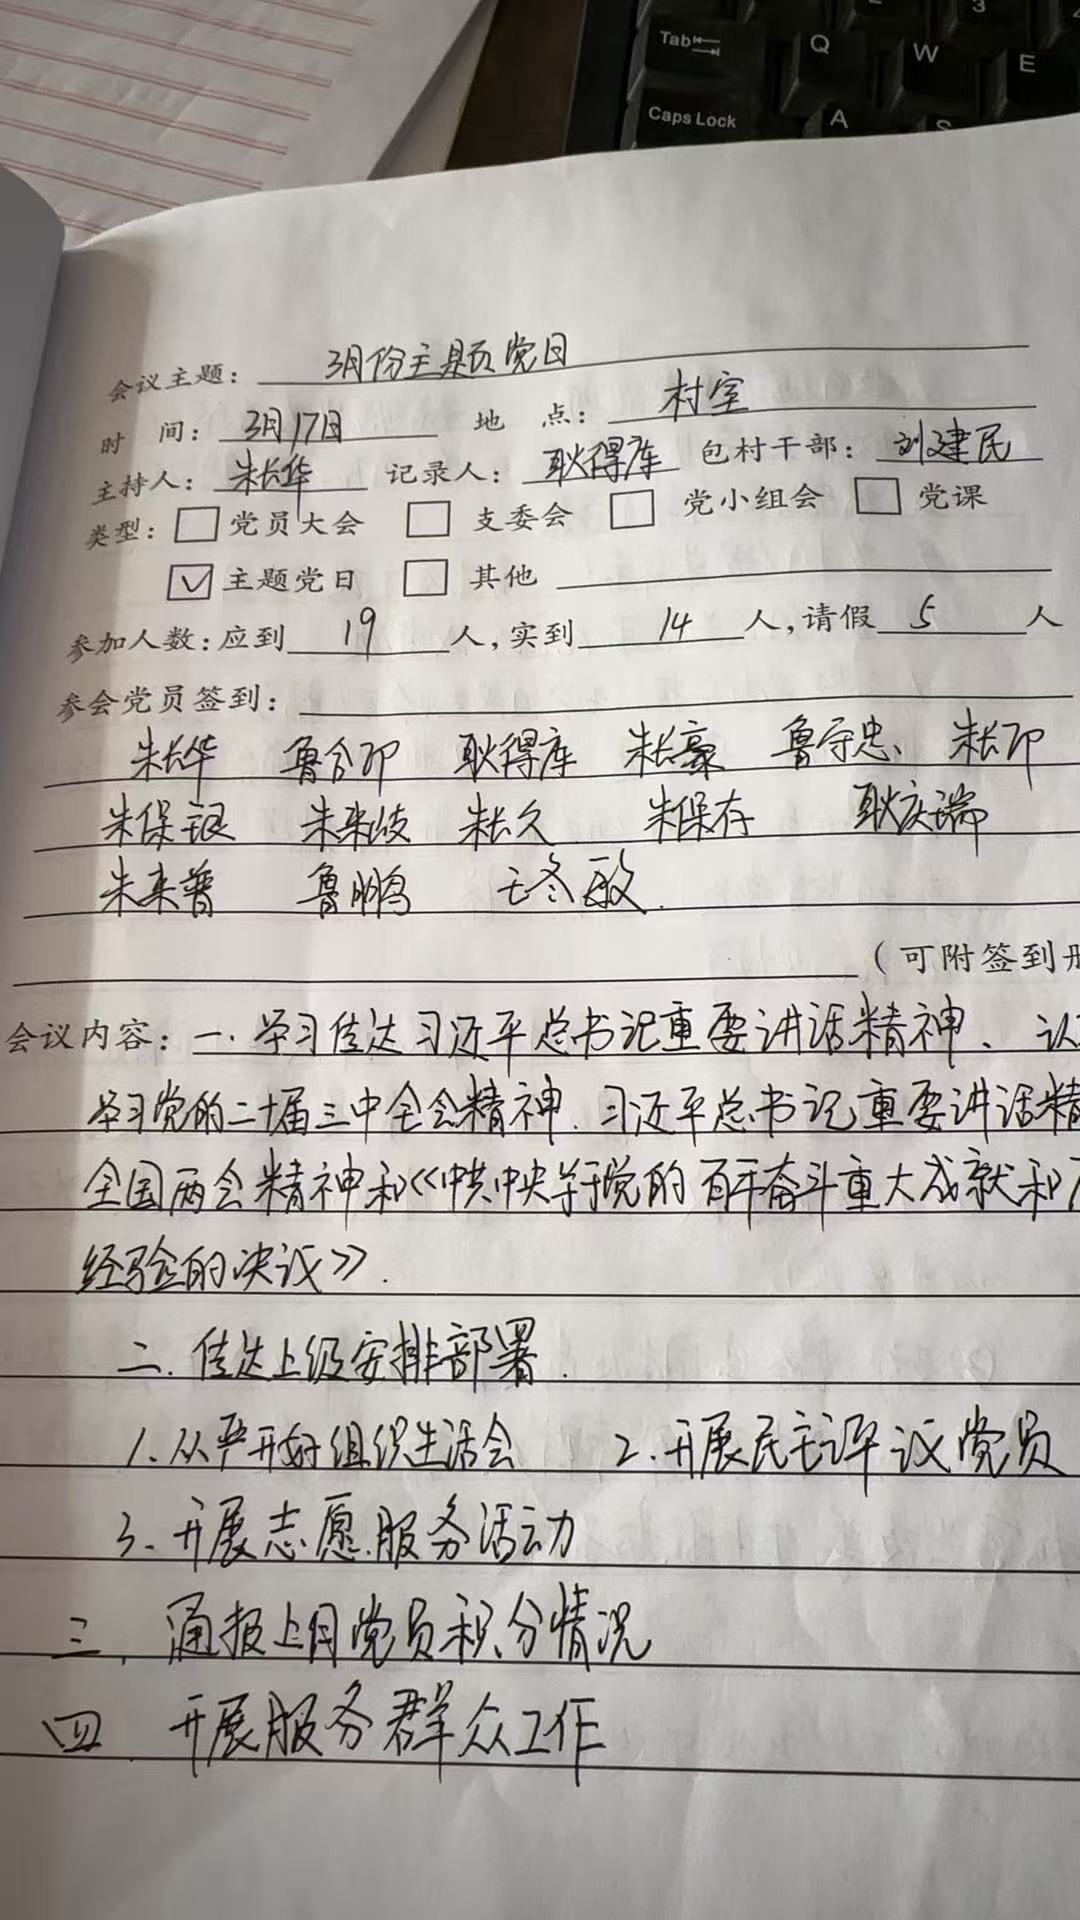 Tab
Q
W
E
3
Caps Lock
A
S
会议主题: 3月份主题党日
时 间: 3月17日 地 点: 村室
主持人: 朱长华 记录人: 耿得库 包村干部: 刘建民
类型: □ 党员大会 □ 支委会 □ 党小组会 □ 党课
☑ 主题党日 □ 其他
参加人数: 应到 19 人, 实到 14 人, 请假 5 人
参会党员签到:
朱长华 鲁合印 耿得库 朱长豪 鲁守忠 朱长印
朱保银 朱来岐 朱长久 朱保存 耿庆瑞
朱来普 鲁鹏 王冬敏
(可附签到册
会议内容: 一. 学习传达习近平总书记重要讲话精神、认
学习党的二十届三中全会精神. 习近平总书记重要讲话精
全国两会精神和《中共中央关于党的百年奋斗重大成就和
经验的决议》.
二. 传达上级安排部署.
1. 从严开好组织生活会 2. 开展民主评议党员
3. 开展志愿服务活动
三. 通报上月党员积分情况
四 开展服务群众工作